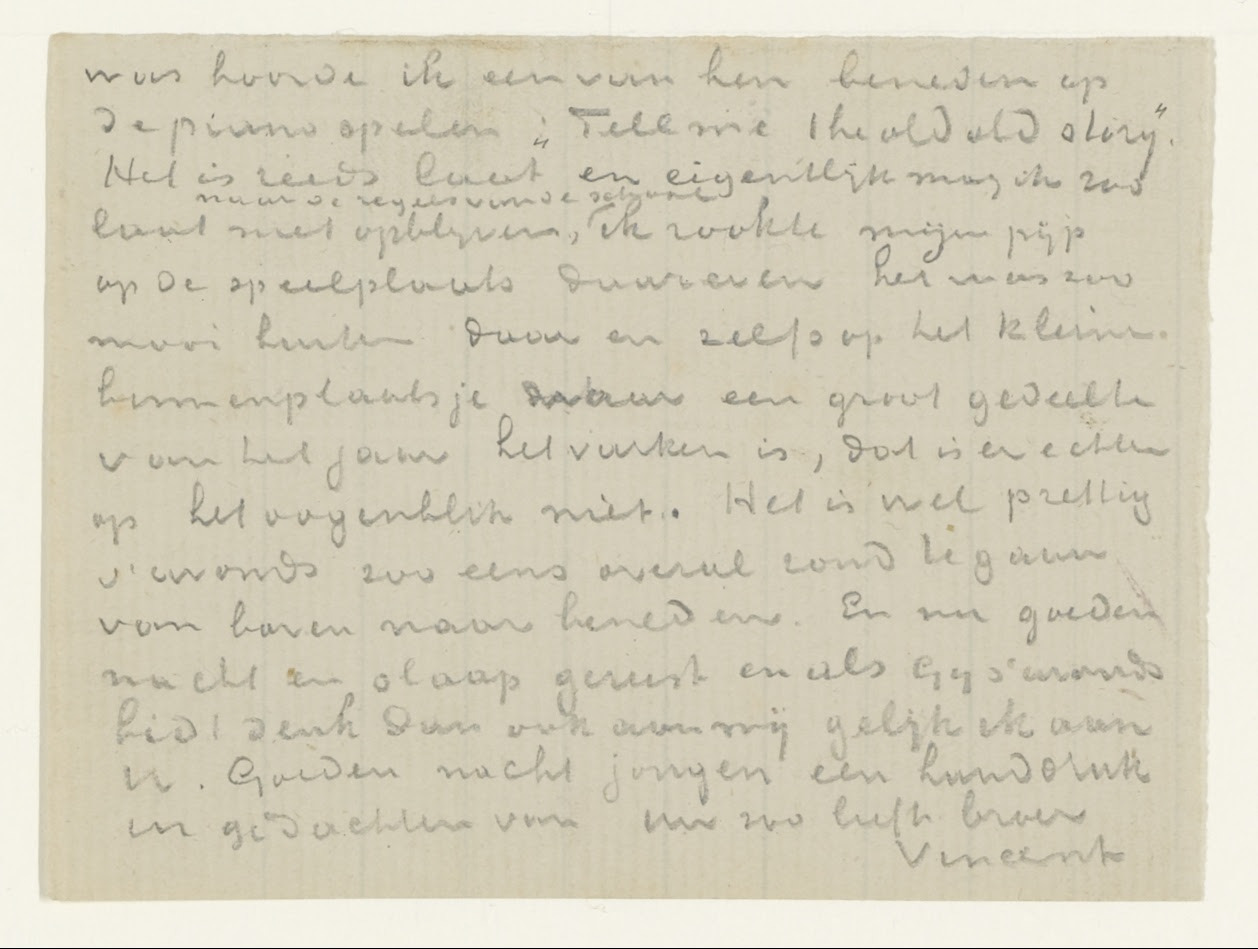 was hoorde ik een van hen beneden op
de piano spelen: „Tell me the old old story”.
Het is reeds laat en eigentlijk mag ik zoo
naar de regels van de school
laat niet opblijven, Ik rookte mijn pijp
op de speelplaats daareven het was zoo
mooi buiten daar en zelfs op het kleine
binnenplaatsje waar een groot gedeelte
van het jaar het varken is, dat is er echter
op het oogenblik niet. Het is wel prettig
s'avonds zoo eens overal rond te gaan
van boven naar beneden. En nu goeden
nacht en slaap gerust en als Gij s'avonds
bidt denk dan ook aan mij gelijk ik aan
U. Goeden nacht jongen een handdruk
in gedachten van uw zoo liefh broer
Vincent